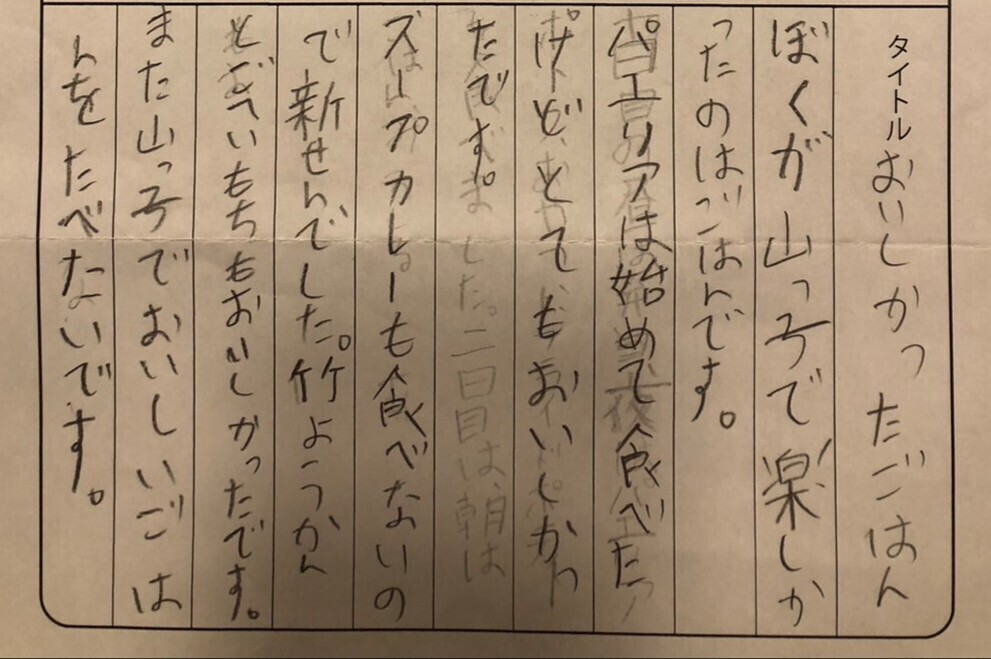 タイトル おいしかったごはん
ぼくが山っ子で楽しか
ったのはごはんです。
パエリアは始めて食べた
けどとてもおいしかっ
たです。
スープカレーも食べないの
で新せんでした。竹ようかん
とごへいもちもおいしかったです。
また山っ子でおいしいごは
んをたべたいです。